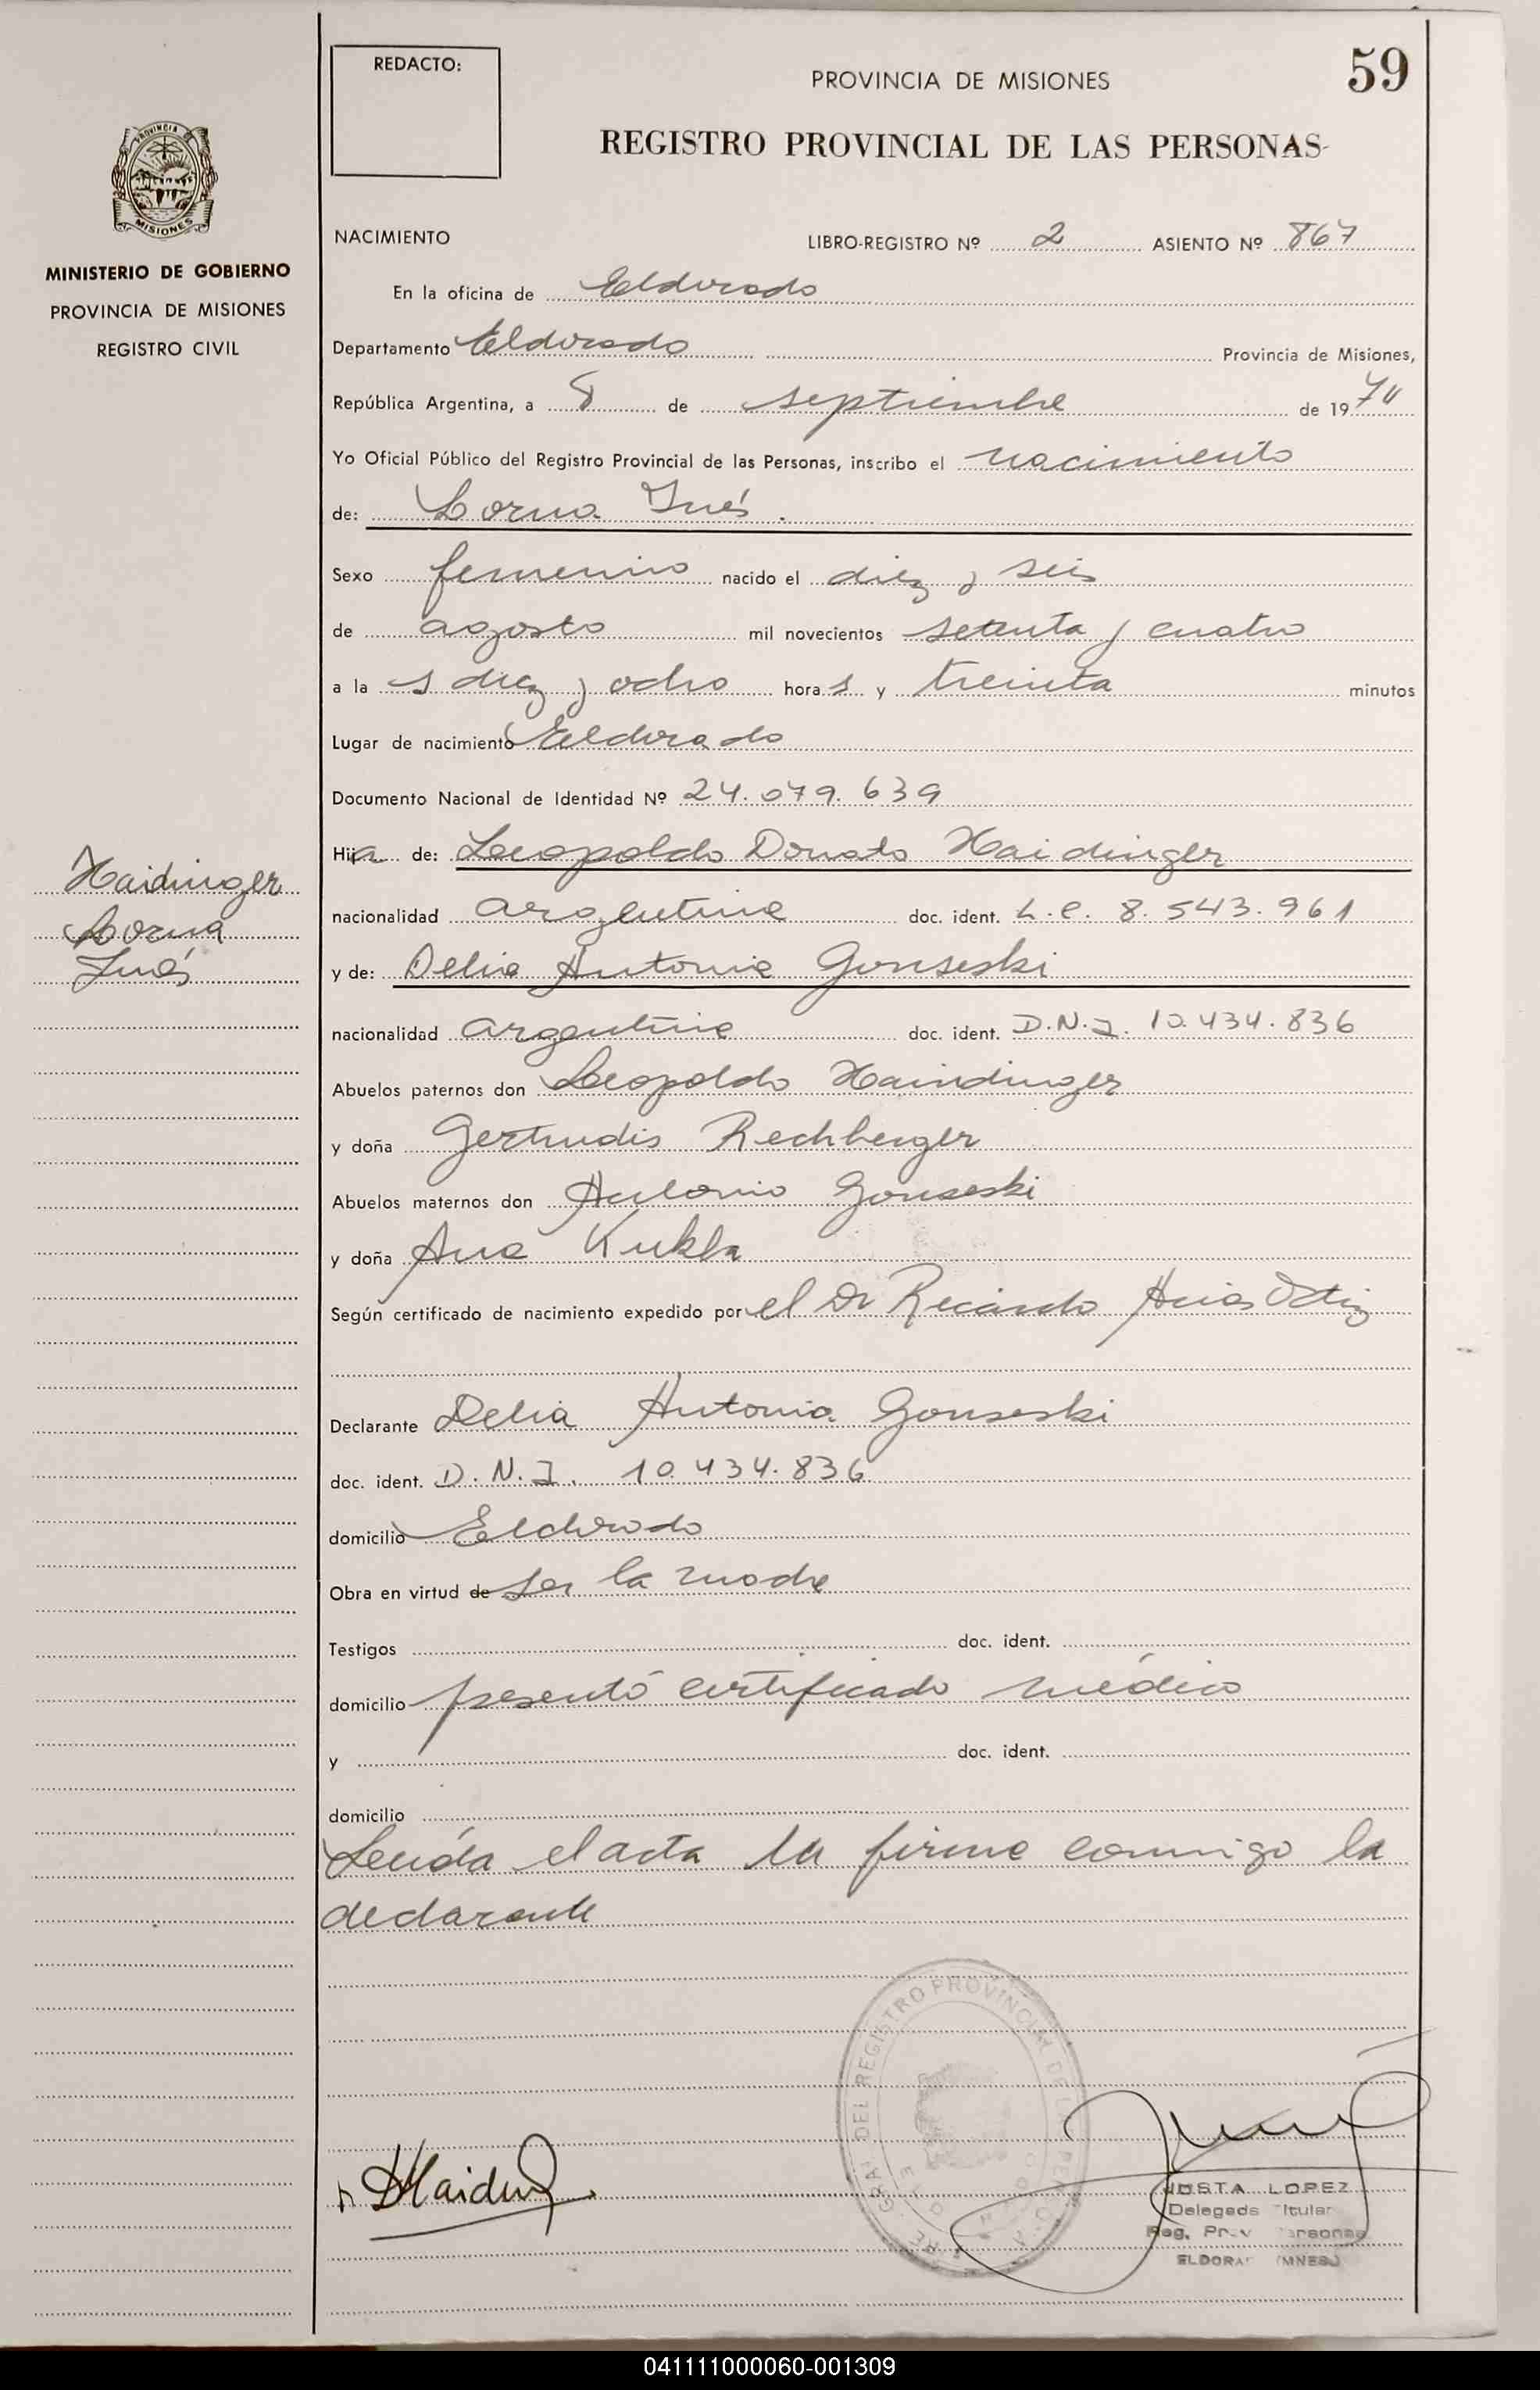 REDACTO:
PROVINCIA DE MISIONES
59
REGISTRO PROVINCIAL DE LAS PERSONAS
PROVINCIA DE
MISIONES
MINISTERIO DE GOBIERNO
PROVINCIA DE MISIONES
REGISTRO CIVIL
NACIMIENTO LIBRO-REGISTRO Nº 2 ASIENTO Nº 867
En la oficina de Eldorado
Departamento Eldorado Provincia de Misiones,
República Argentina, a 8 de septiembre de 1974
Yo Oficial Público del Registro Provincial de las Personas, inscribo el nacimiento
de: Lorna Inés.
Sexo femenino nacido el diez y seis
de agosto mil novecientos setenta y cuatro
a la s diez y ocho hora s y treinta minutos
Lugar de nacimiento Eldorado
Documento Nacional de Identidad Nº 24.079.639
Hija de: Leopoldo Donato Haidinger
Haidinger
Lorna
Inés
nacionalidad argentina doc. ident. L.e. 8.543.961
y de: Delia Antonia Gonseski
nacionalidad argentina doc. ident. D.N.I. 10.434.836
Abuelos paternos don Leopoldo Haindinger
y doña Gertrudis Rechberger
Abuelos maternos don Antonio Gonseski
y doña Ana Kukla
Según certificado de nacimiento expedido por el Dr Ricardo Arias Ortiz
Declarante Delia Antonia Gonseski
doc. ident. D.N.I. 10.434.836
domicilio Eldorado
Obra en virtud de ser la madre
Testigos doc. ident.
domicilio presentó certificado médico
y doc. ident.
domicilio
Leída el acta la firma conmigo la
declarante
DEL REGISTRO PROVINCIAL DE LAS
Haiding
JUSTA LOPEZ
Delegada Titular
Reg. Prov. Personas
ELDORADO (MNES.)
041111000060-001309